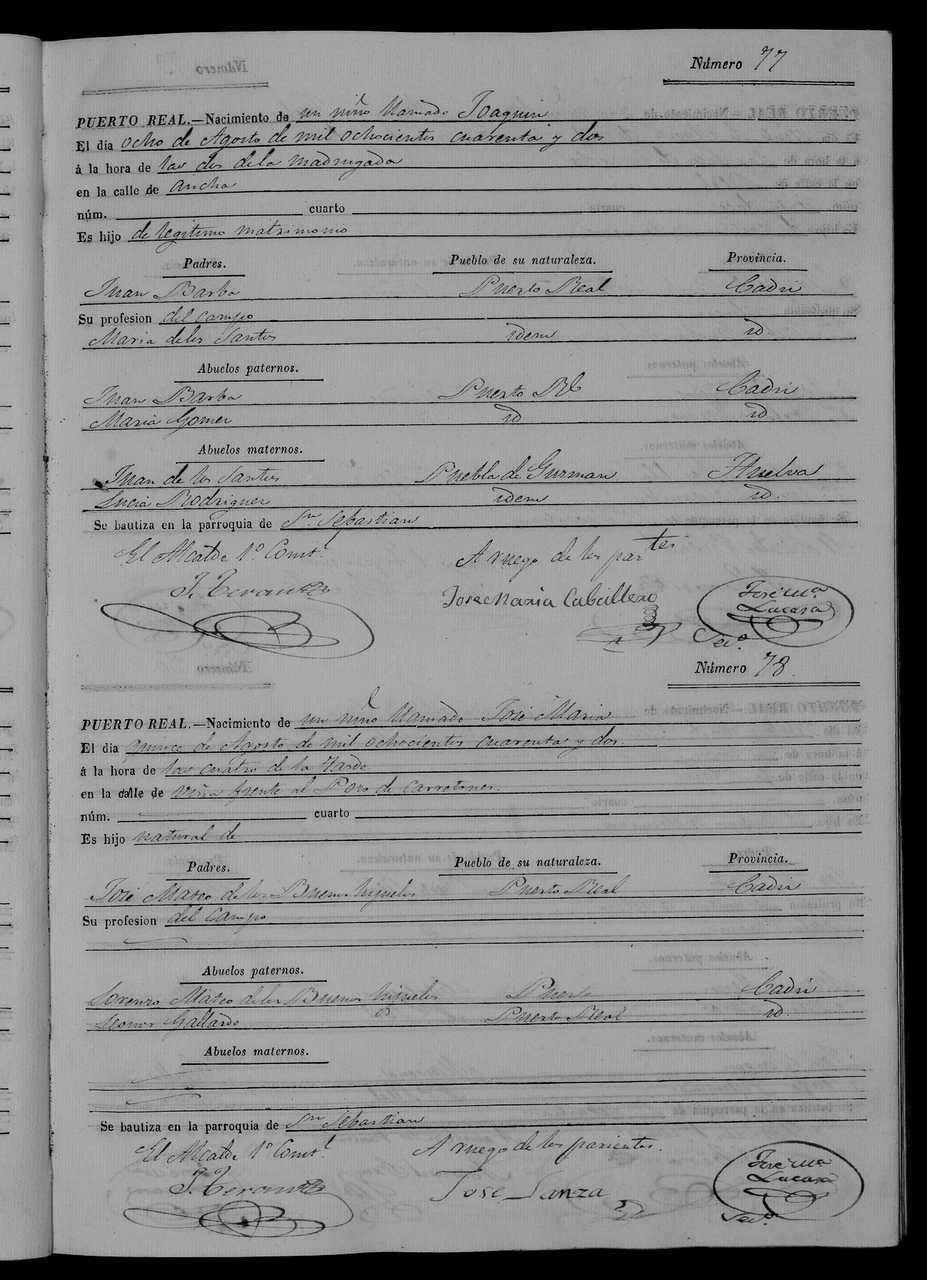 Número 77
PUERTO REAL.—Nacimiento de un niño llamado Joaquin
El dia ocho de Agosto de mil ochocientos cuarenta y dos
á la hora de las dos de la madrugada
en la calle de ancha
núm. cuarto
Es hijo de legitimo matrimonio
Padres. Pueblo de su naturaleza. Provincia.
Juan Barba Puerto Real Cadiz
Su profesion del campo
Maria de los Santos idem id
Abuelos paternos.
Juan Barba Puerto Rl Cadiz
Maria Gomez id id
Abuelos maternos.
Juan de los Santos Puebla de Guzman Huelva
Lucia Rodriguez idem id.
Se bautiza en la parroquia de Sn Sebastian
El Alcalde 1º Const.l A ruego de los partes
J. Teran José Maria Caballero José Mª
Lucasa
Seco.
Número 78.
PUERTO REAL.—Nacimiento de un niño llamado José Maria
El dia quince de Agosto de mil ochocientos cuarenta y dos.
á la hora de las cuatro de la tarde
en la calle de Viña frente al Pozo de
núm. cuarto
Es hijo natural de
Padres. Pueblo de su naturaleza. Provincia.
José Mateo de los Buenos Migueles Puerto Real Cadiz
Su profesion del campo
Abuelos paternos.
Lorenzo Mateo de los Buenos Migueles Puerto Cadiz
Leonor Gallardo Puerto Real id.
Abuelos maternos.
Se bautiza en la parroquia de Sn Sebastian
El Alcalde 1º Const.l A ruego de los parientes.
J. Teran José Lanza José Mª
Lucasa
Seco.